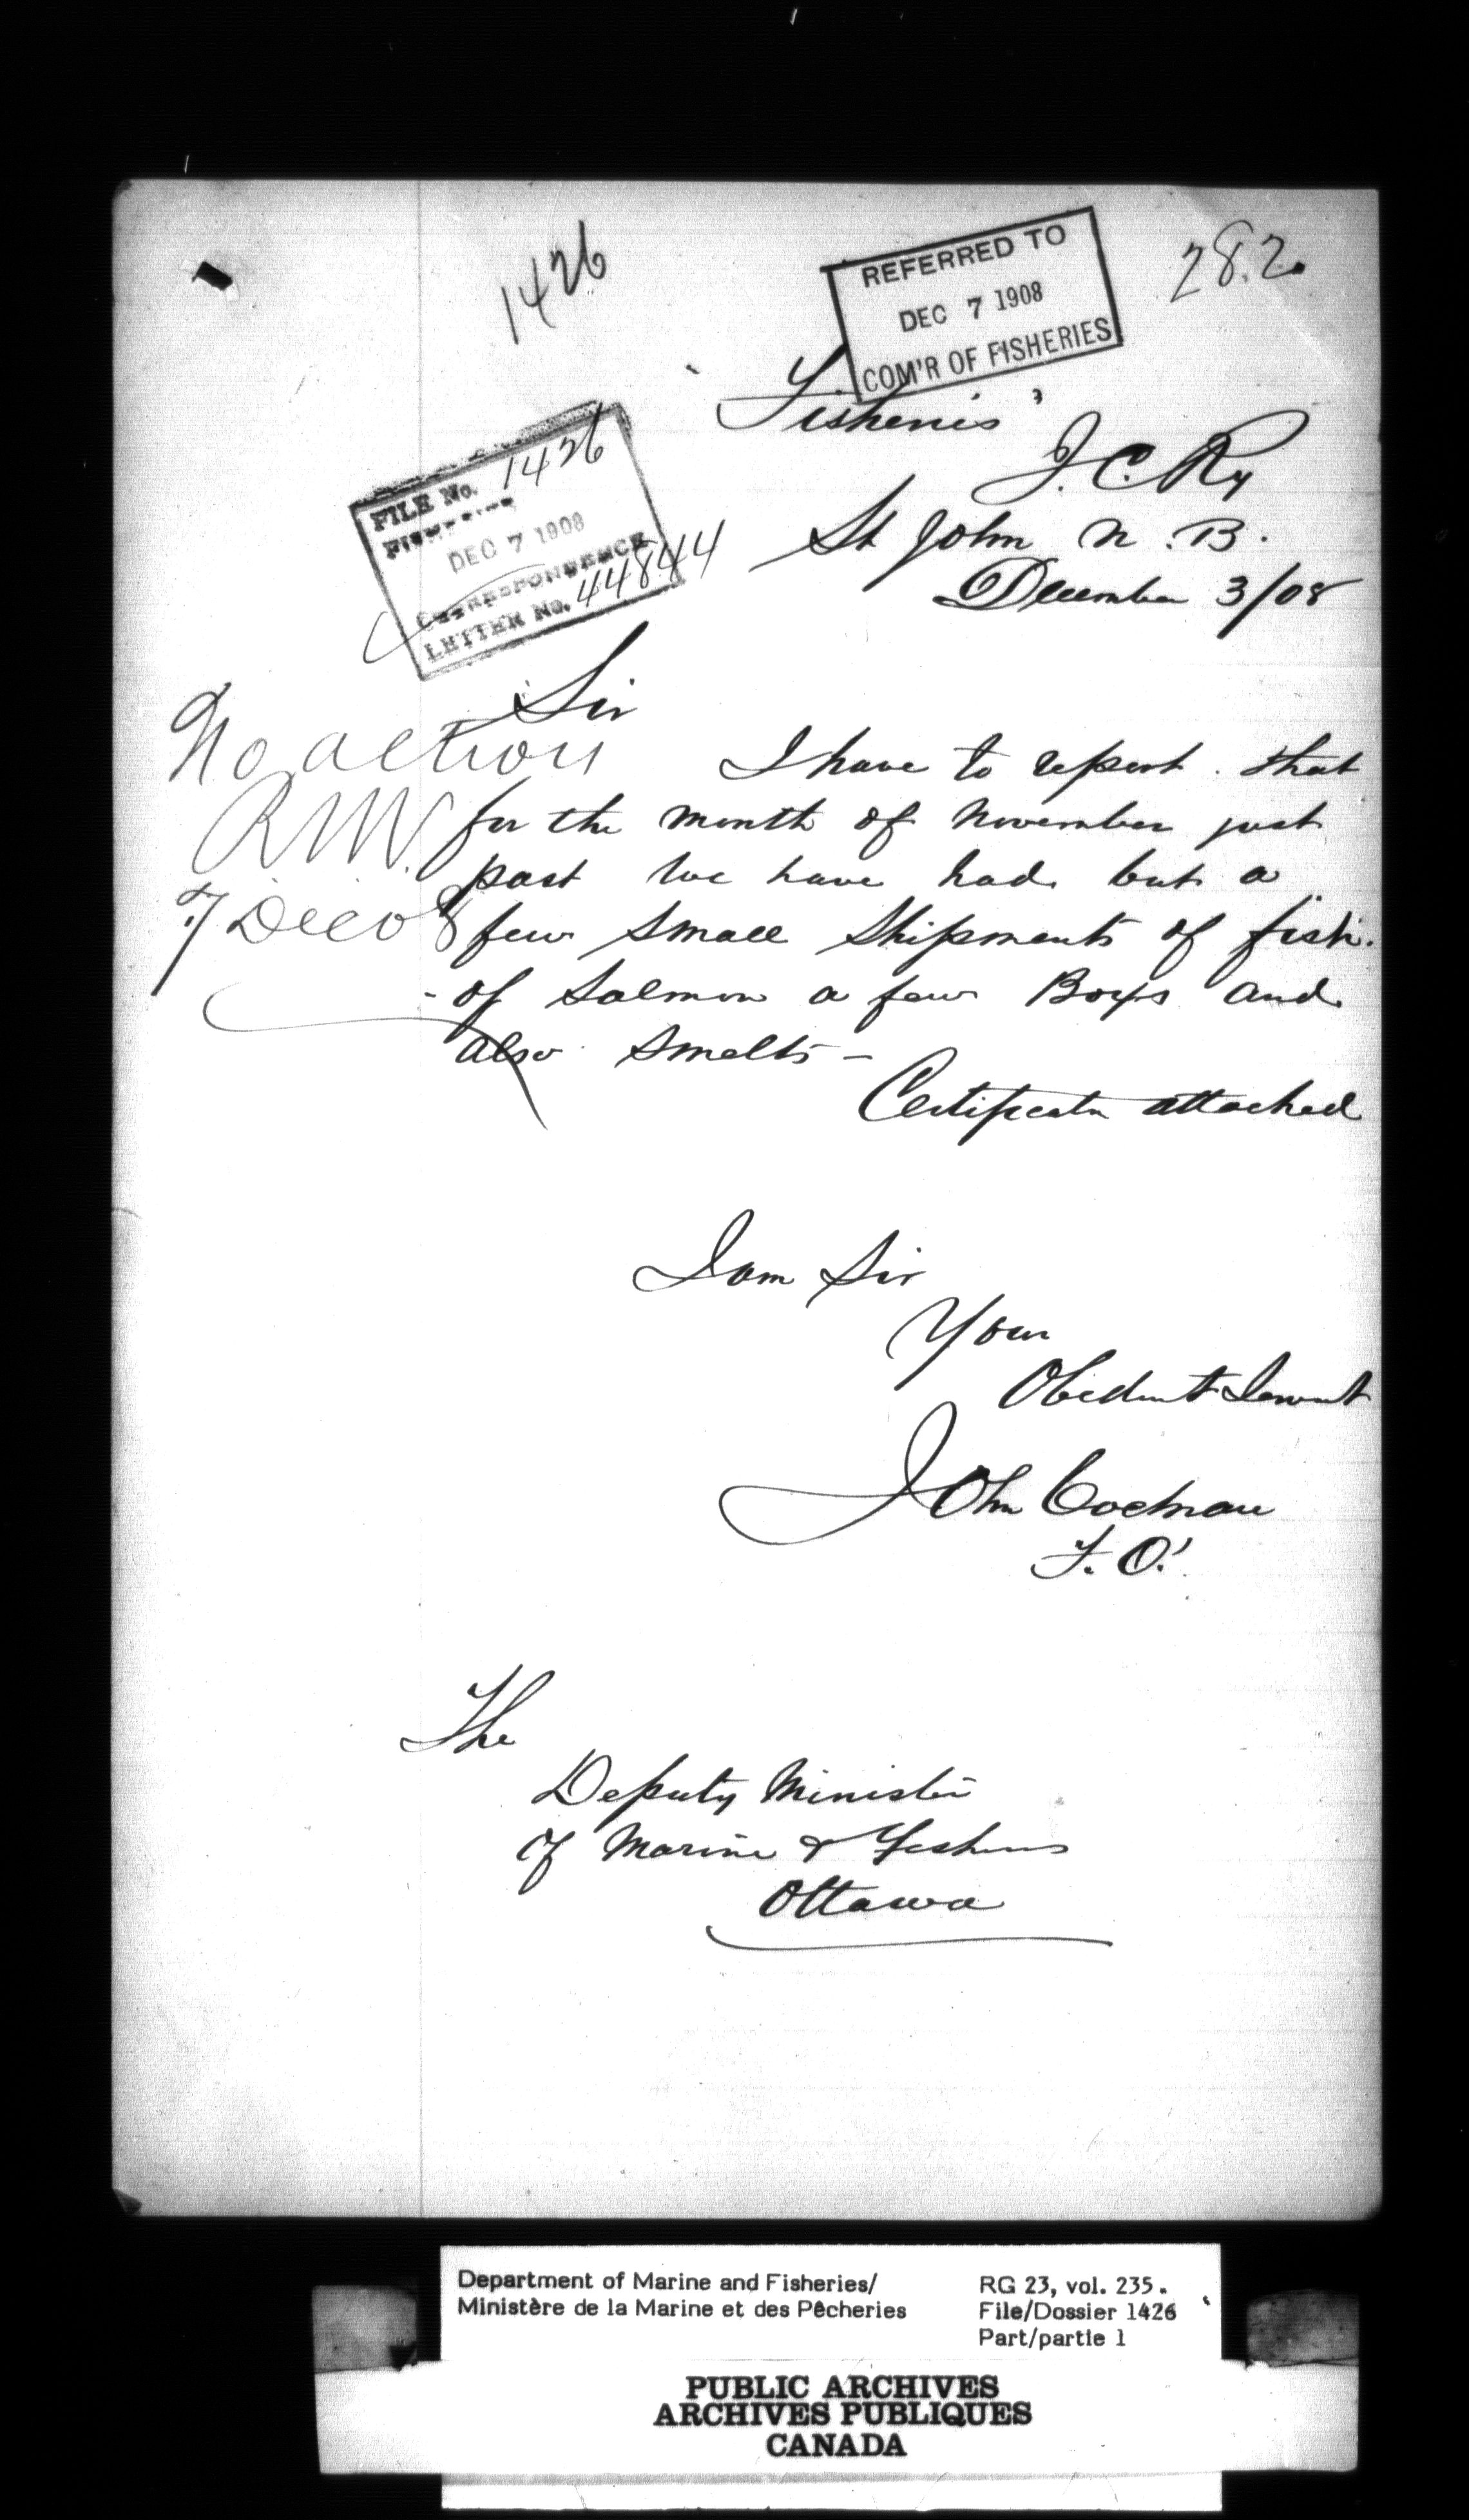 1426
28.2.
REFERRED TO
DEC 7 1908
COM'R OF FISHERIES
Fisheries
I. C. Ry
St John N. B.
December 3/08
FILE No. 1426
DEC 7 1908
CORRESPONDENCE
LETTER No. 44844
Sir
No action
7 Dec 08
I have to report that
for the month of November just
past we have had but a
few small shipments of fish.
of Salmon a few Boxs and
also smelts -
Certificate attached
I am Sir
Your
Obedient Servant
John Cochrane
F. O.
The
Deputy Minister
of Marine & Fisheries
Ottawa
Department of Marine and Fisheries/
Ministère de la Marine et des Pêcheries
RG 23, vol. 235.
File/Dossier 1426
Part/partie 1
PUBLIC ARCHIVES
ARCHIVES PUBLIQUES
CANADA